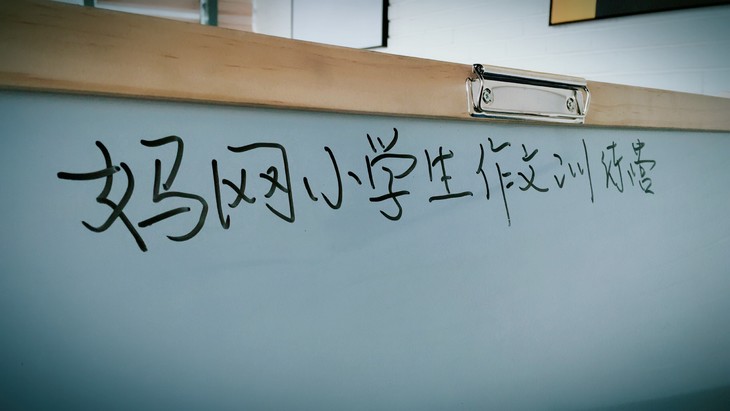 妈网小学生作文训练营